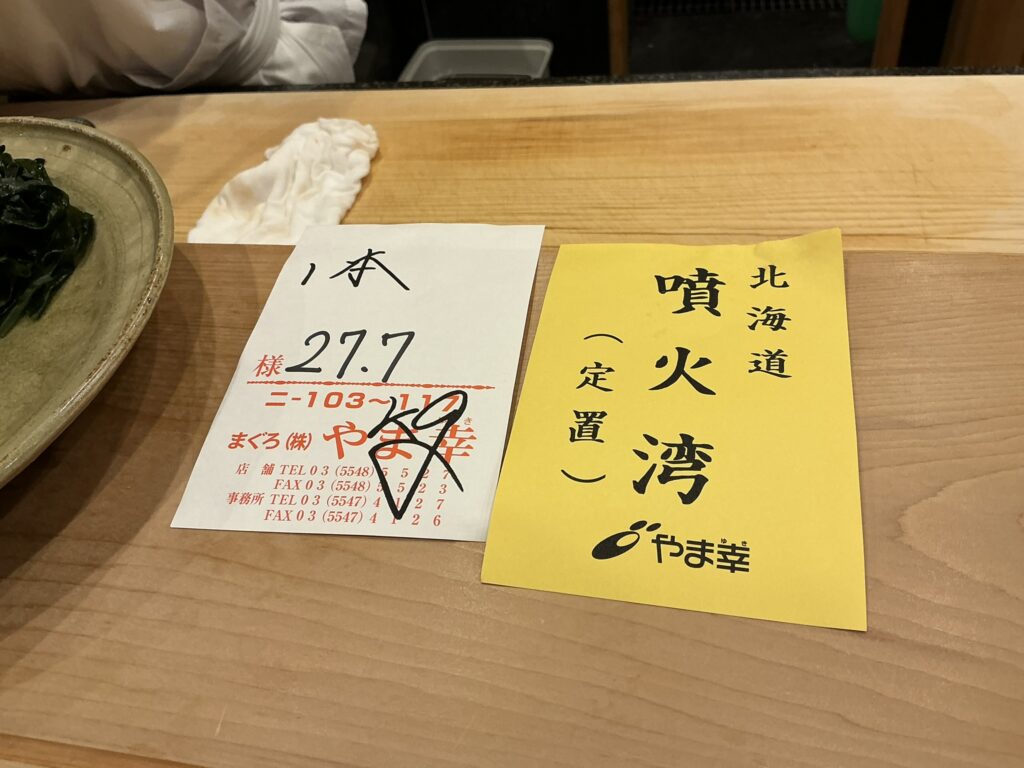 1本
27.7
様
ニ-103~117
まぐろ(株) やま幸
き
店舗 TEL 03 (5548) 5527
FAX 03 (5548) 5523
事務所 TEL 03 (5547) 4127
FAX 03 (5547) 4126
北海道
噴火湾
(定置)
ゆき
やま幸